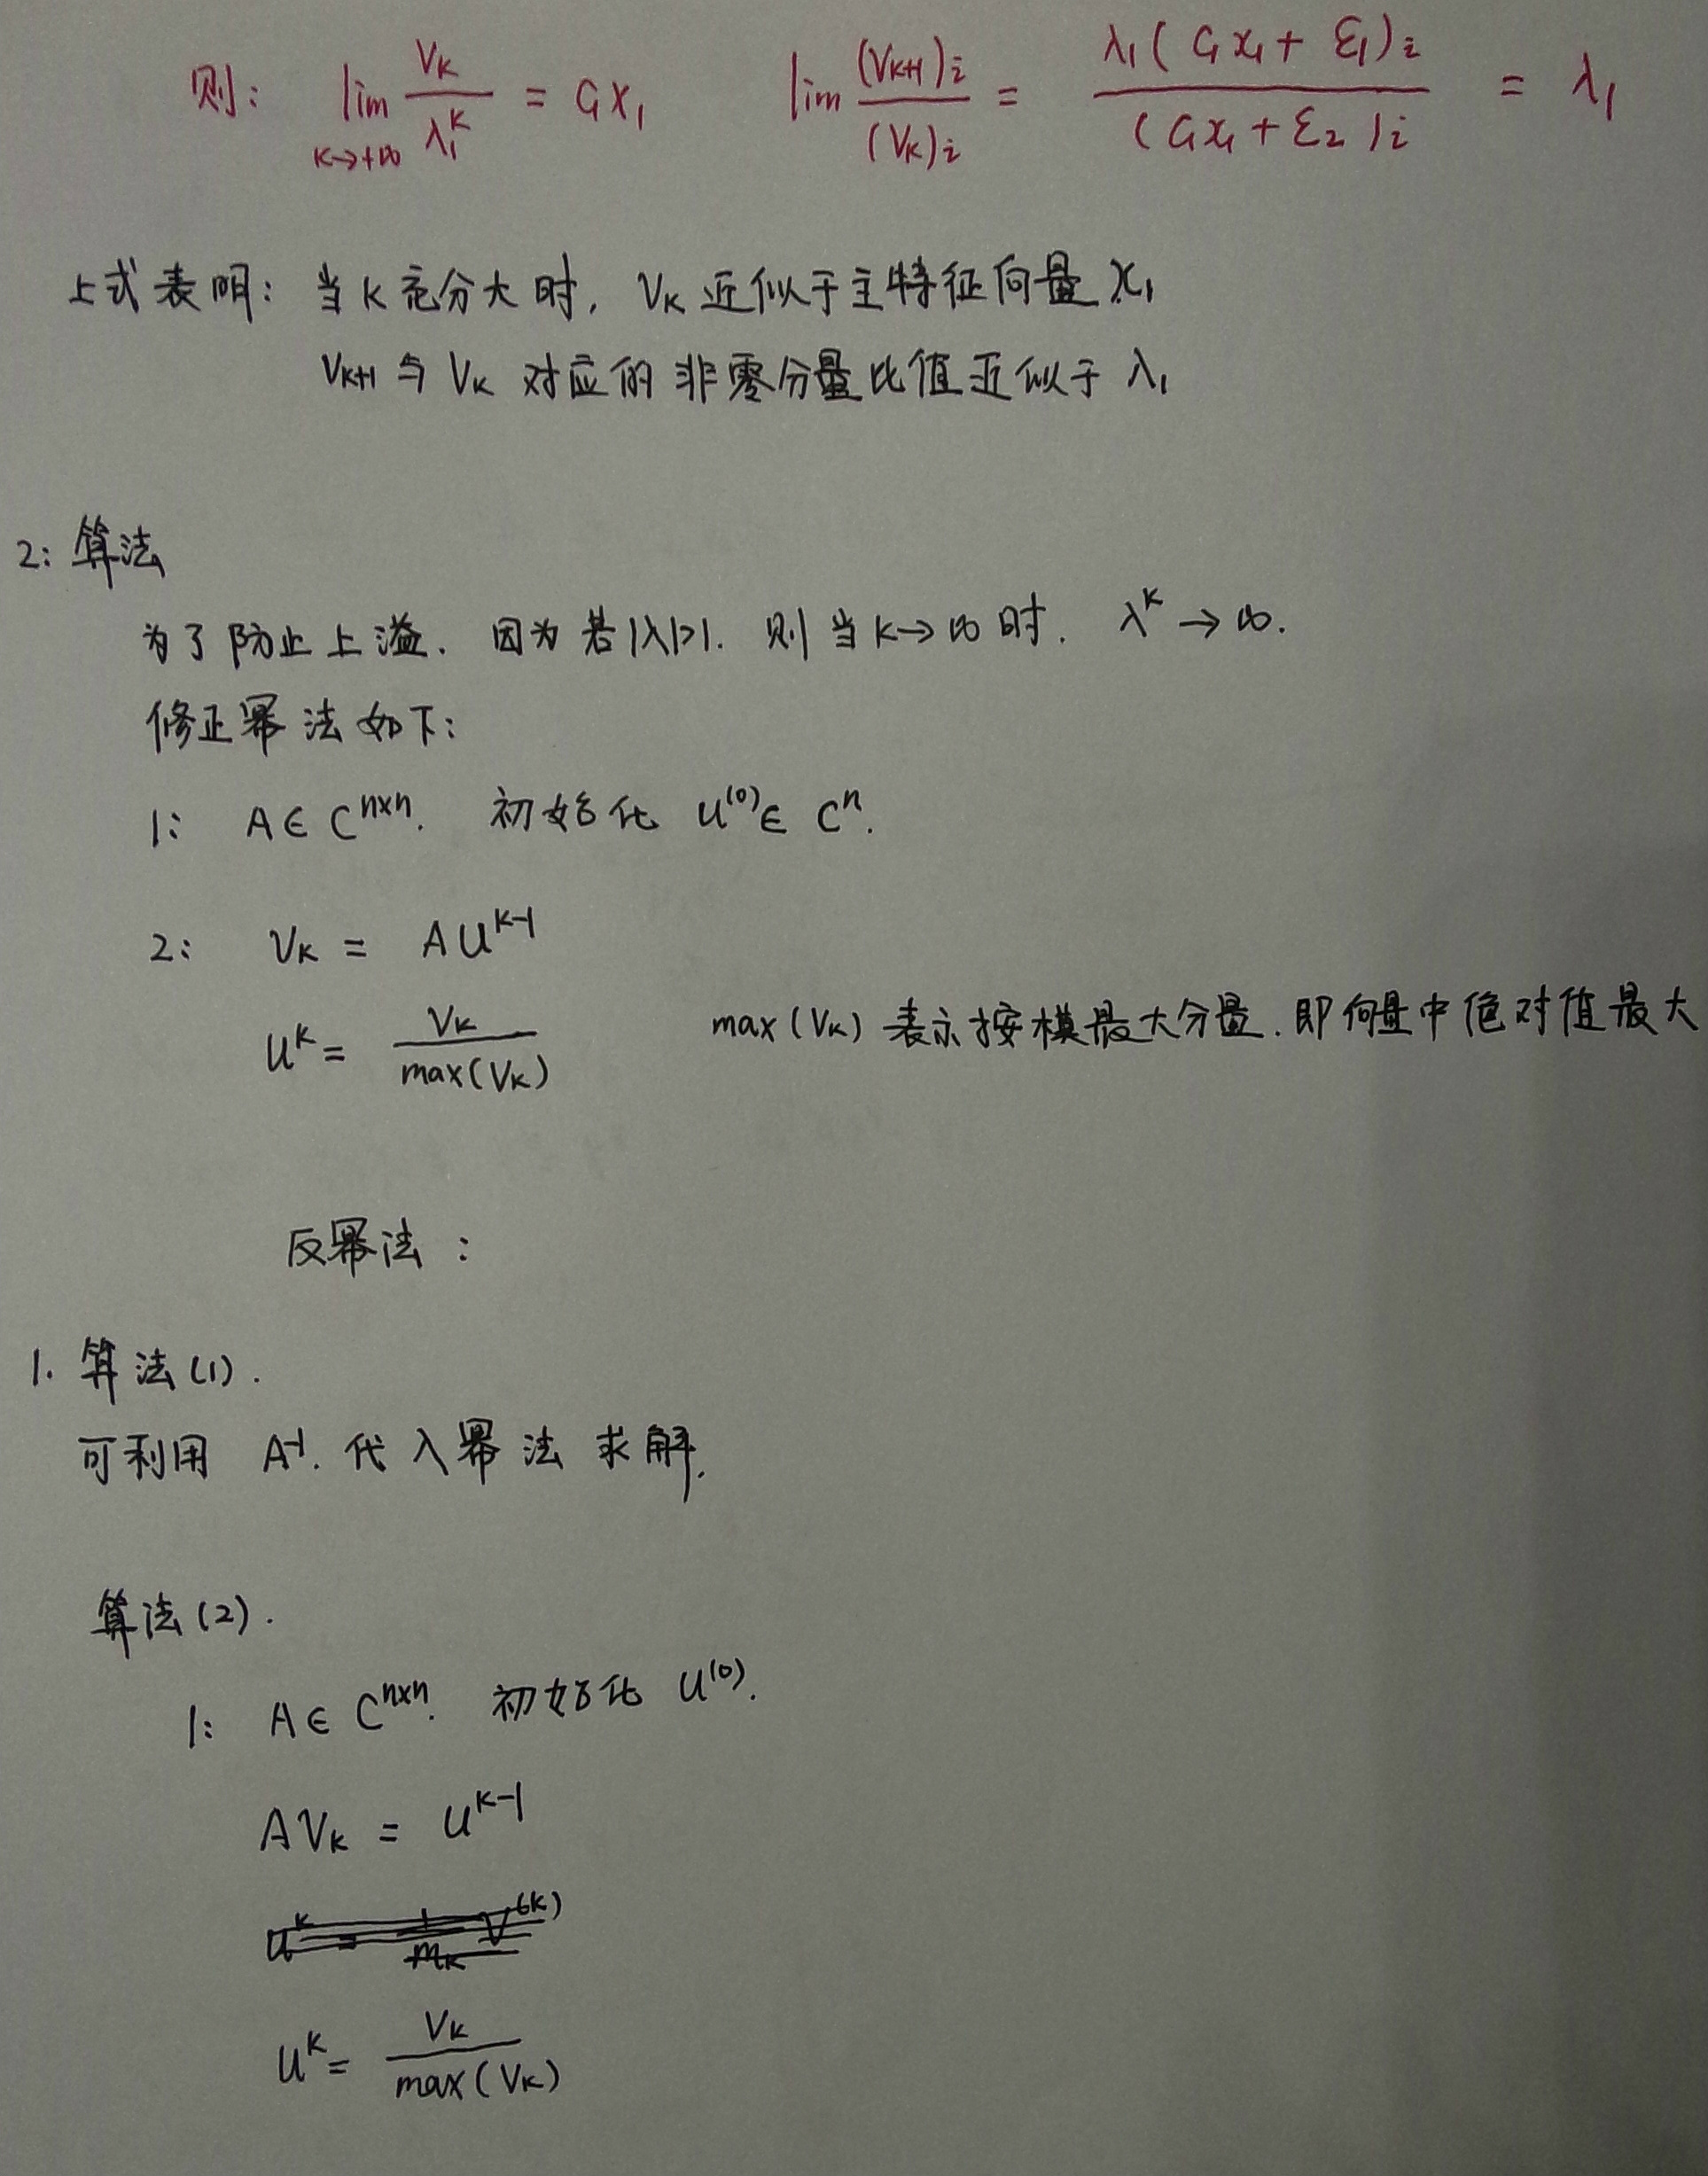 则: lim_{k→+∞} V_k/λ_1^k = C_1x_1    lim (V_{k+1})_i/(V_k)_i = λ_1(C_1x_1+ε_1)_i/(C_1x_1+ε_2)_i = λ_1
上式表明: 当k充分大时, V_k近似于主特征向量x_1
V_{k+1}与V_k对应的非零分量比值近似于λ_1
2: 算法
为了防止上溢. 因为若|λ|>1. 则当k→∞时. λ^k→∞.
修正幂法如下:
1: A∈C^{n×n}. 初始化 u^{(0)}∈C^n.
2: V_k = Au^{k-1}
u^k = V_k/max(V_k)    max(V_k)表示按模最大分量.即向量中绝对值最大
反幂法:
1. 算法(1).
可利用 A^{-1}. 代入幂法求解.
算法(2).
1: A∈C^{n×n}. 初始化 u^{(0)}.
AV_k = u^{k-1}
u^k = 1/m_k V^{(k)}
u^k = V_k/max(V_k)